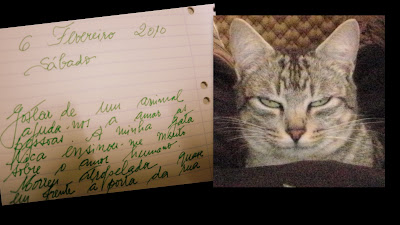 6 Fevereiro 2010
Sábado
Gostar de um animal
ajuda-nos a amar as
pessoas. A minha gata
Kica ensinou-me muito
sobre o amor humano
Morreu atropelada quase
em frente à porta da rua